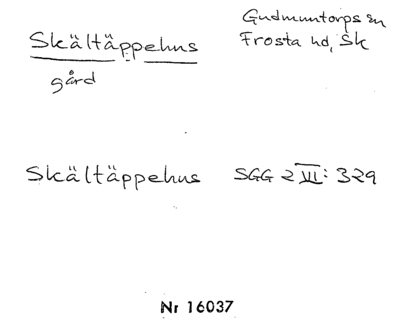 Skältäppehus
Gudmuntorps sn
Frosta hd, Sk
gård
Skältäppehus SGG 2 VI: 329
Nr 16037